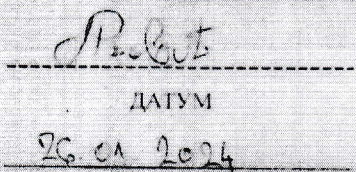 ДАТУМ
26.01 2024